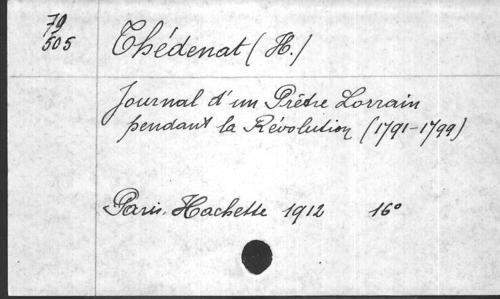 79
505
Thédenat (H.)
Journal d'un Prêtre Lorrain
pendant la Révolution (1791-1799)
Paris. Hachette 1912 16°